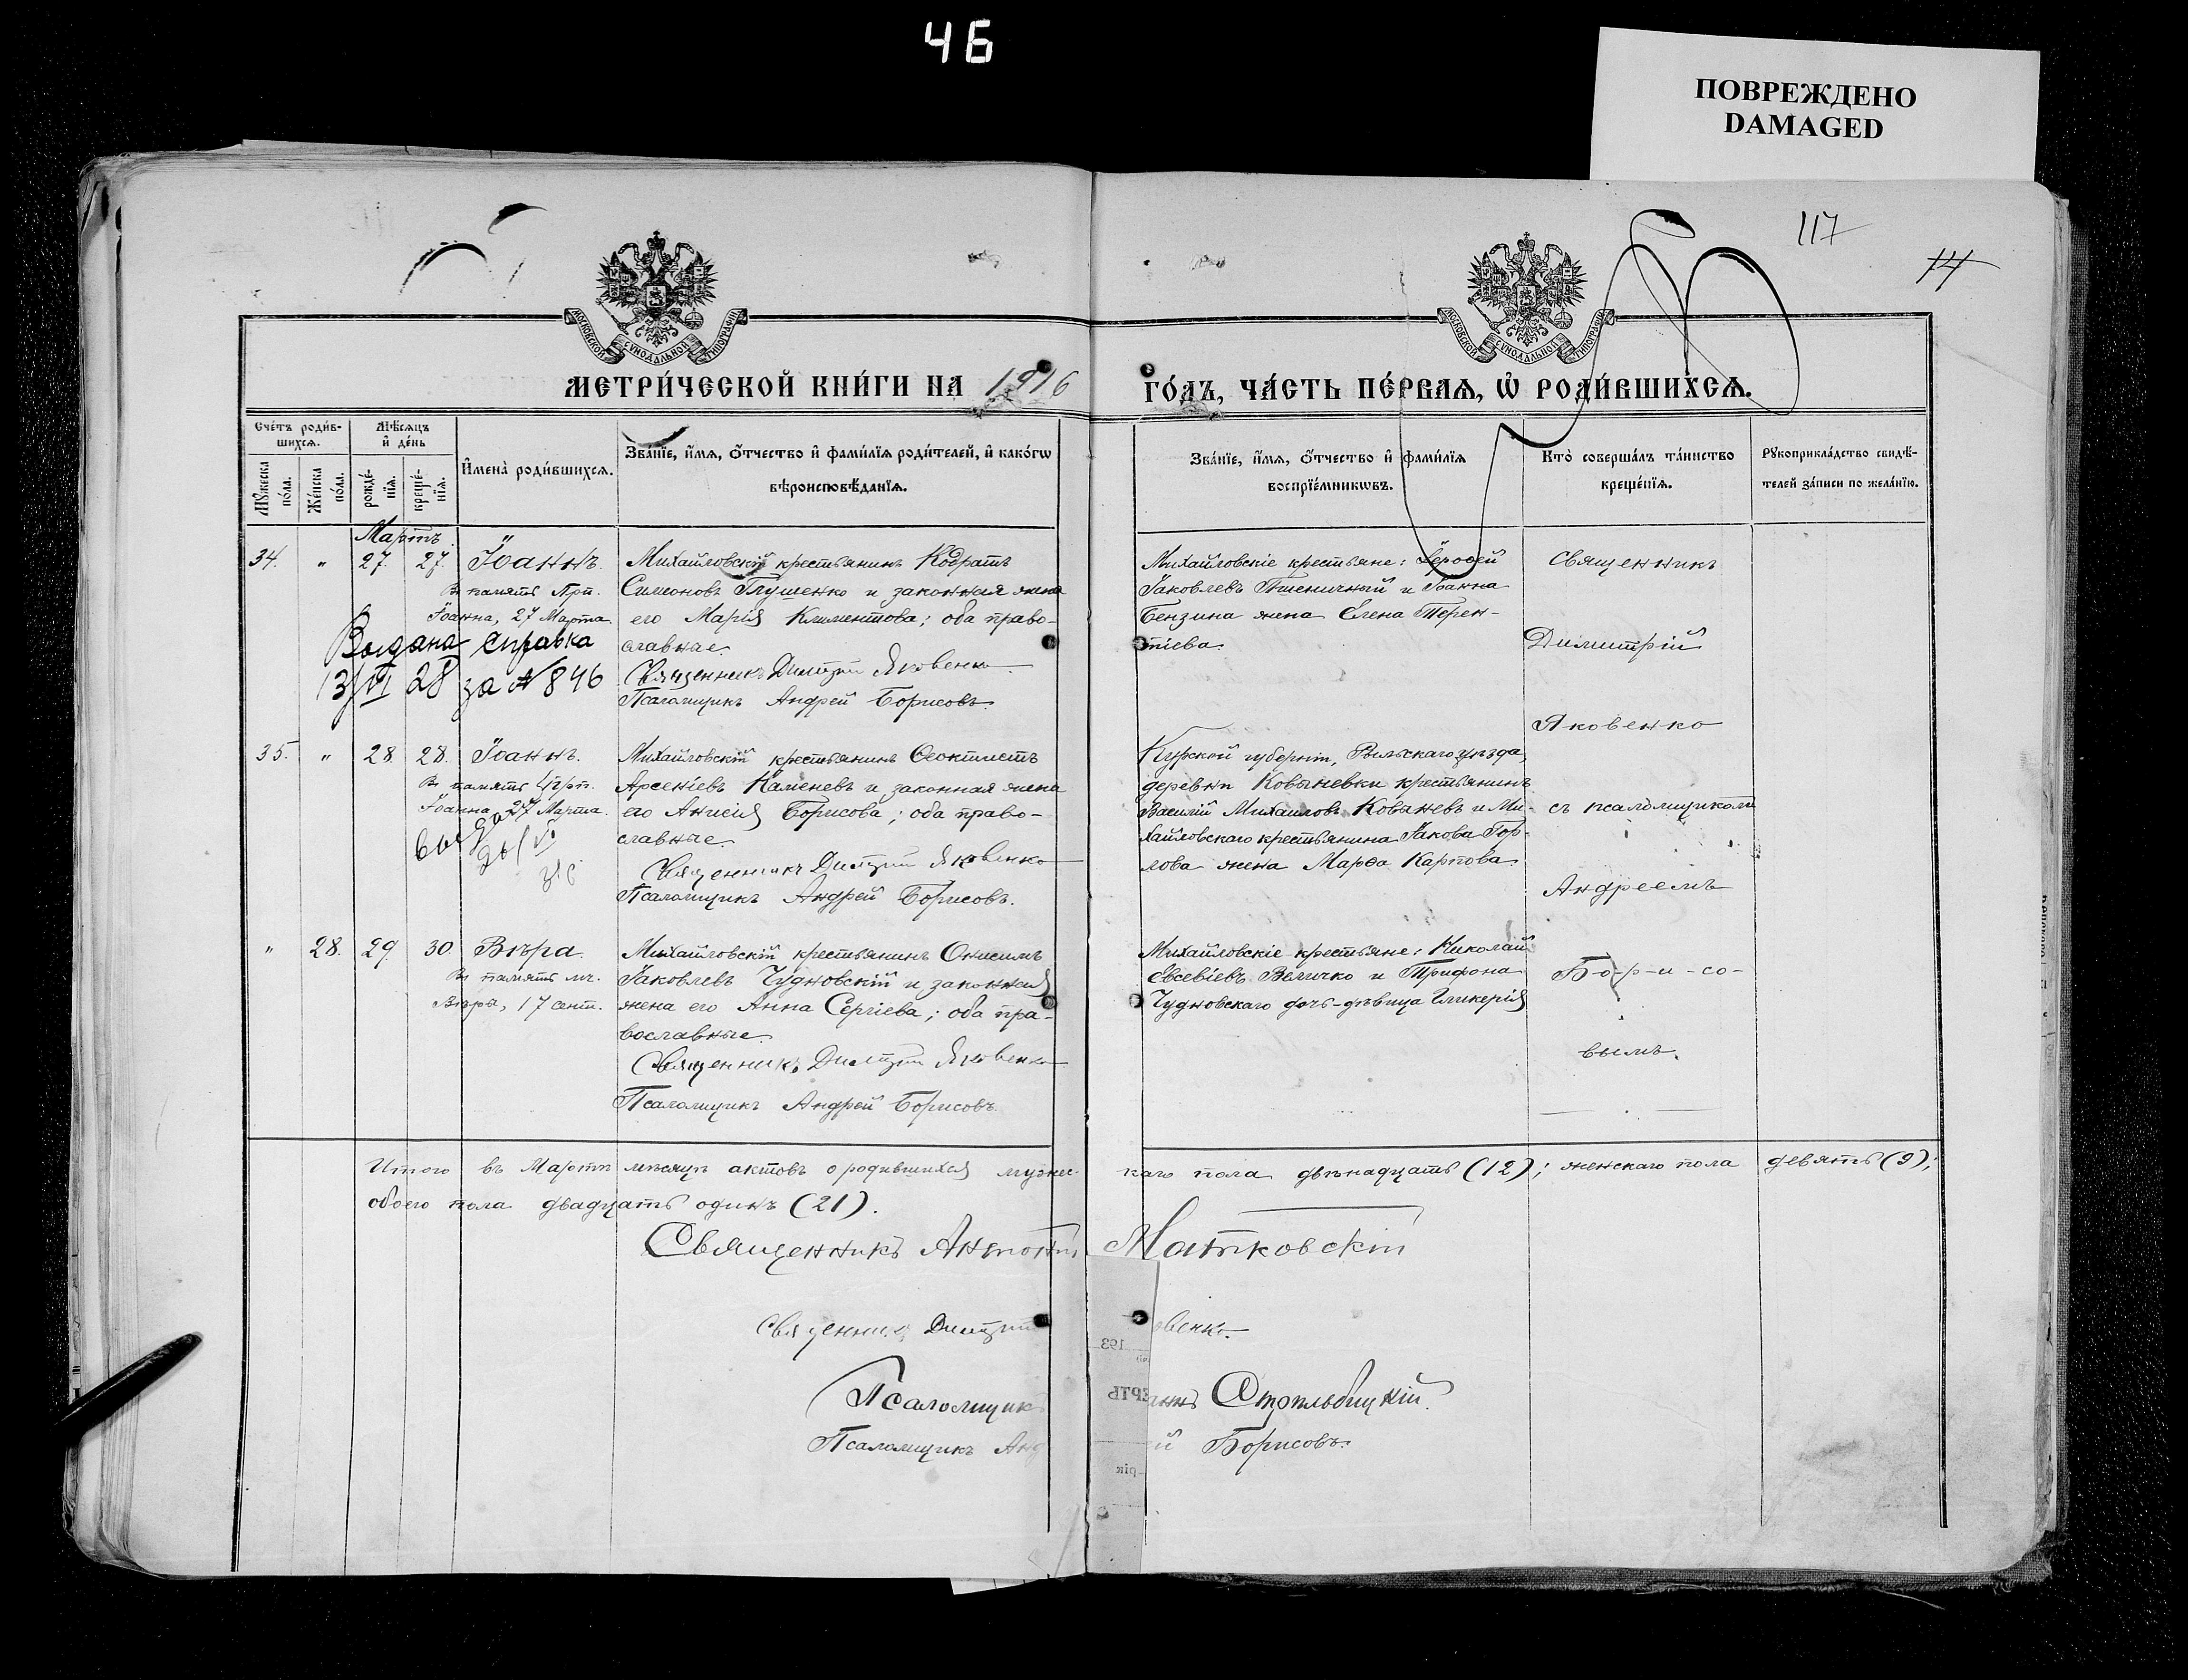 46
ПОВРЕЖДЕНО
DAMAGED
117
14
МОСКОВСКОЙ СѴНОДАЛЬНОЙ ТИПОГРАФІИ
МОСКОВСКОЙ СѴНОДАЛЬНОЙ ТИПОГРАФІИ
МЕТРИ́ЧЕСКОЙ КНИ́ГИ НА 1916 ГО́ДЪ, ЧА́СТЬ ПЕ́РВАЯ, Ѡ҆ РОДИ́ВШИХСЯ.
Сче́тъ роди́в-
шихся.
Мꙋжеска
по́ла.
Же́нска
по́ла.
Мѣ́сяцъ
и҆ де́нь
рожде́-
нїя.
креще́-
нїя.
И҆мена̀ роди́вшихся.
Зва́нїе, и҆́мя, ѻ҆́тчество и҆ фами́лїя роди́телей, и҆ како́гѡ
вѣроисповѣ́данїя.
Зва́нїе, и҆́мя, ѻ҆́тчество и҆ фами́лїя
воспрїе́мникѡвъ.
Кто̀ соверша́лъ та́инство
креще́нїя.
Рꙋкоприкла́дство свидѣ́-
телей за́писи по жела́нїю.
Мартъ
34. " 27. 27. Іоаннъ.
Въ память Прп.
Іоанна, 27 Марта.
Выдана справка
13/VI 28 за № 846
Михайловскій крестьянинъ Кодратъ
Симоновъ Глушенко и законная жена
его Марія Климентова; оба право-
славные.
Священникъ Димитрій Яковенко
Псаломщикъ Андрей Борисовъ.
Михайловскіе крестьяне: Іеровей
Іаковлевъ Пшеничный и Іоанна
Бензина жена Елена Терен-
тіева.
Священникъ
Димитрій
Яковенко
35. " 28. 28. Іоаннъ.
Въ память Прп.
Іоанна 27 Марта.
Михайловскій крестьянинъ Ѳеоктистъ
Арсеніевъ Каменевъ и законная жена
его Анисія Борисова; оба право-
славные.
Священникъ Димитрій Яковенко
Псаломщикъ Андрей Борисовъ.
Курской губерніи, Рыльскаго уѣзда,
деревни Ковыневки крестьянинъ
Василій Михаиловъ Ковыневъ и Ми-
хайловскаго крестьянина Іакова Гор-
лова жена Марѳа Карпова.
съ псаломщикомъ
Андреемъ
" 28. 29. 30. Вѣра.
Въ память мч.
Вѣры, 17 сент.
Михайловскій крестьянинъ Онисимъ
Іаковлевъ Чудновскій и законная
жена его Анна Сергіева; оба пра-
вославные.
Священникъ Димитрій Яковенко
Псаломщикъ Андрей Борисовъ.
Михайловскіе крестьяне: Николай
Евсевіевъ Величко и Трифона
Чудновскаго дочь-дѣвица Гликерія
Б-о-р-и-со-
вымъ.
Итого въ Мартѣ мѣсяцѣ актовъ о родившихся мужес-каго пола двѣнадцать (12); женскаго пола девять (9);
обоего пола двадцать одинъ (21).
Священникъ Антоній Матковскій
Священникъ Димитрій овенко.
Псаломщик Стотльбицкій.
Псаломщикъ Анд й Борисовъ.
193
ЕРТЬ